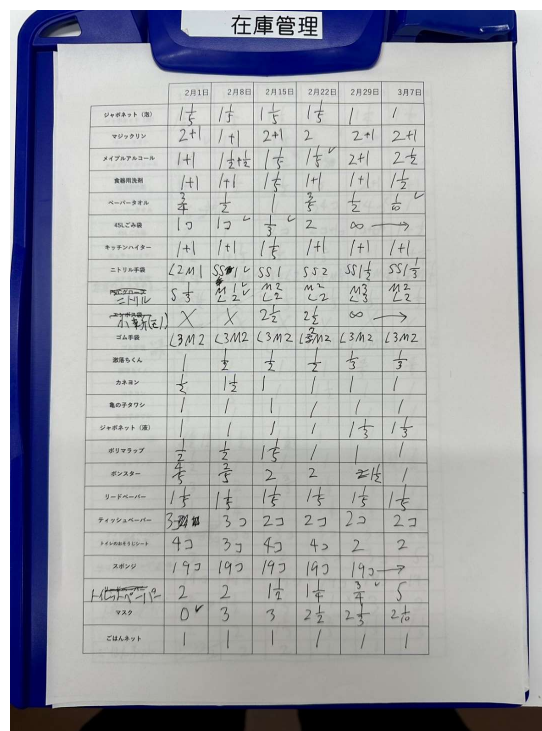 在庫管理
2月1日 2月8日 2月15日 2月22日 2月29日 3月7日
ジャボネット（泡） 1 1/5 1 1/5 1 1/5 1 1/5 1 1
マジックリン 2+1 1+1 2+1 2 2+1 2+1
メイプルアルコール 1+1 1 1/2+1/2 1 1/5 1 1/5✓ 2+1 2 1/2
食器用洗剤 1+1 1+1 1 1/5 1+1 1+1 1 1/2
ペーパータオル 3/4 1/2 1 3/5 1/2 1/10✓
45Lごみ袋 1コ 1コ✓ 1/3✓ 2 ∞ →
キッチンハイター 1+1 1+1 1 1/5 1+1 1+1 1+1
ニトリル手袋 L2M1 SS 1✓ SS1 SS2 SS1 1/2 SS1 1/3
ニトリル S 1/3 M1 L2✓ M2 L2 M2 L2 M3 L3 M2 L2
X X 2 1/2 2 1/2 ∞ →
ゴム手袋 L3M2 L3M2 L3M2 L3M2 L3M2 L3M2
激落ちくん 1 1/2 1/2 1/2 1/3 1/3
カネヨン 1/2 1 1/2 1 1 1 1
亀の子タワシ 1 1 1 1 1 1
ジャボネット（液） 1 1 1 1 1 1/3 1 1/3
ポリマラップ 1/2 1/2 1 1/5 1 1 1
ボンスター 4/5 2/5 2 2 1 1/2 1
リードペーパー 1 1/5 1 1/5 1 1/5 1 1/5 1 1/5 1 1/5
ティッシュペーパー 3 3コ 2コ 2コ 2コ 2コ
トイレのおそうじシート 4コ 3コ 4コ 4コ 2 2
スポンジ 19コ 19コ 19コ 19コ 19コ →
トイレットペーパー 2 2 1 1/2 1 1/4 3/4✓ 5
マスク 0✓ 3 3 2 1/2 2 1/3 2 1/10
ごはんネット 1 1 1 1 1 1